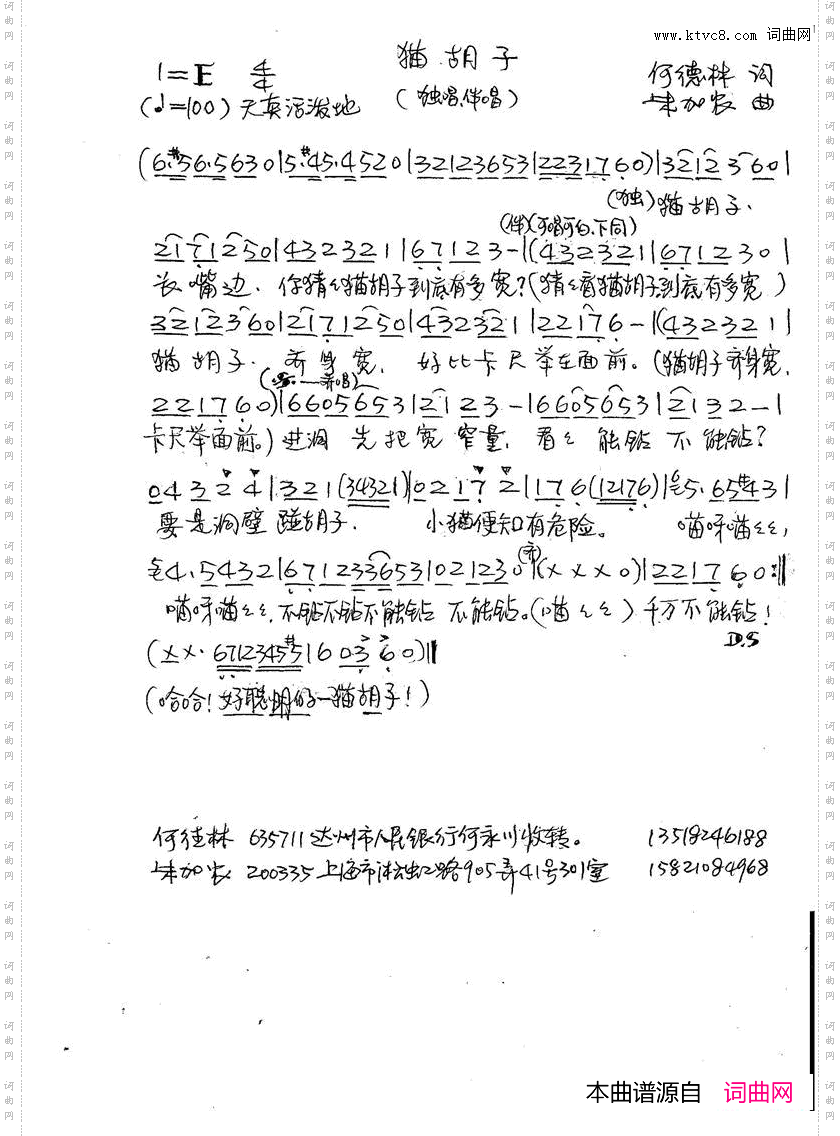 www.ktvc8.com 词曲网
猫胡子
1=E 4/4
何德林 词
(♩=100) 天真活泼地
(独唱、伴唱)
朱加农 曲
(6.#56.5630|5.#45.4520|32123653|2231760)|3212360|
(独)猫胡子、
(伴)(可唱可白、下同)
2171250|432321|67123-|(432321|671230|
长嘴边、你猜猜猫胡子到底有多宽?(猜猜看猫胡子到底有多宽)
3212360|2171250|432321|22176-|(432321|
猫胡子、齐身宽,好比卡尺举在面前。(猫胡子齐身宽,
221760)|66056531|2123-|66056531|2132-|
卡尺举面前。)进洞先把宽窄量,看看能钻不能钻?
04324|321(34321)|02172|176(12176)|5.65#43|
要是洞壁碰胡子、小猫便知有危险。喵呀喵喵喵,
4.5432|6712336531|021230|(xxx0)|221760:‖
喵呀喵喵喵,不钻不钻不能钻不能钻。(喵喵喵)千万不能钻!
D.S
(xx.6712345#5|60360)‖
(哈哈!好聪明的一猫胡子!)
何德林 635711达州市人民银行何永川收转。 13518246188
朱加农 200335上海市淞虹路905弄41号301室 15821084968
本曲谱源自 词曲网